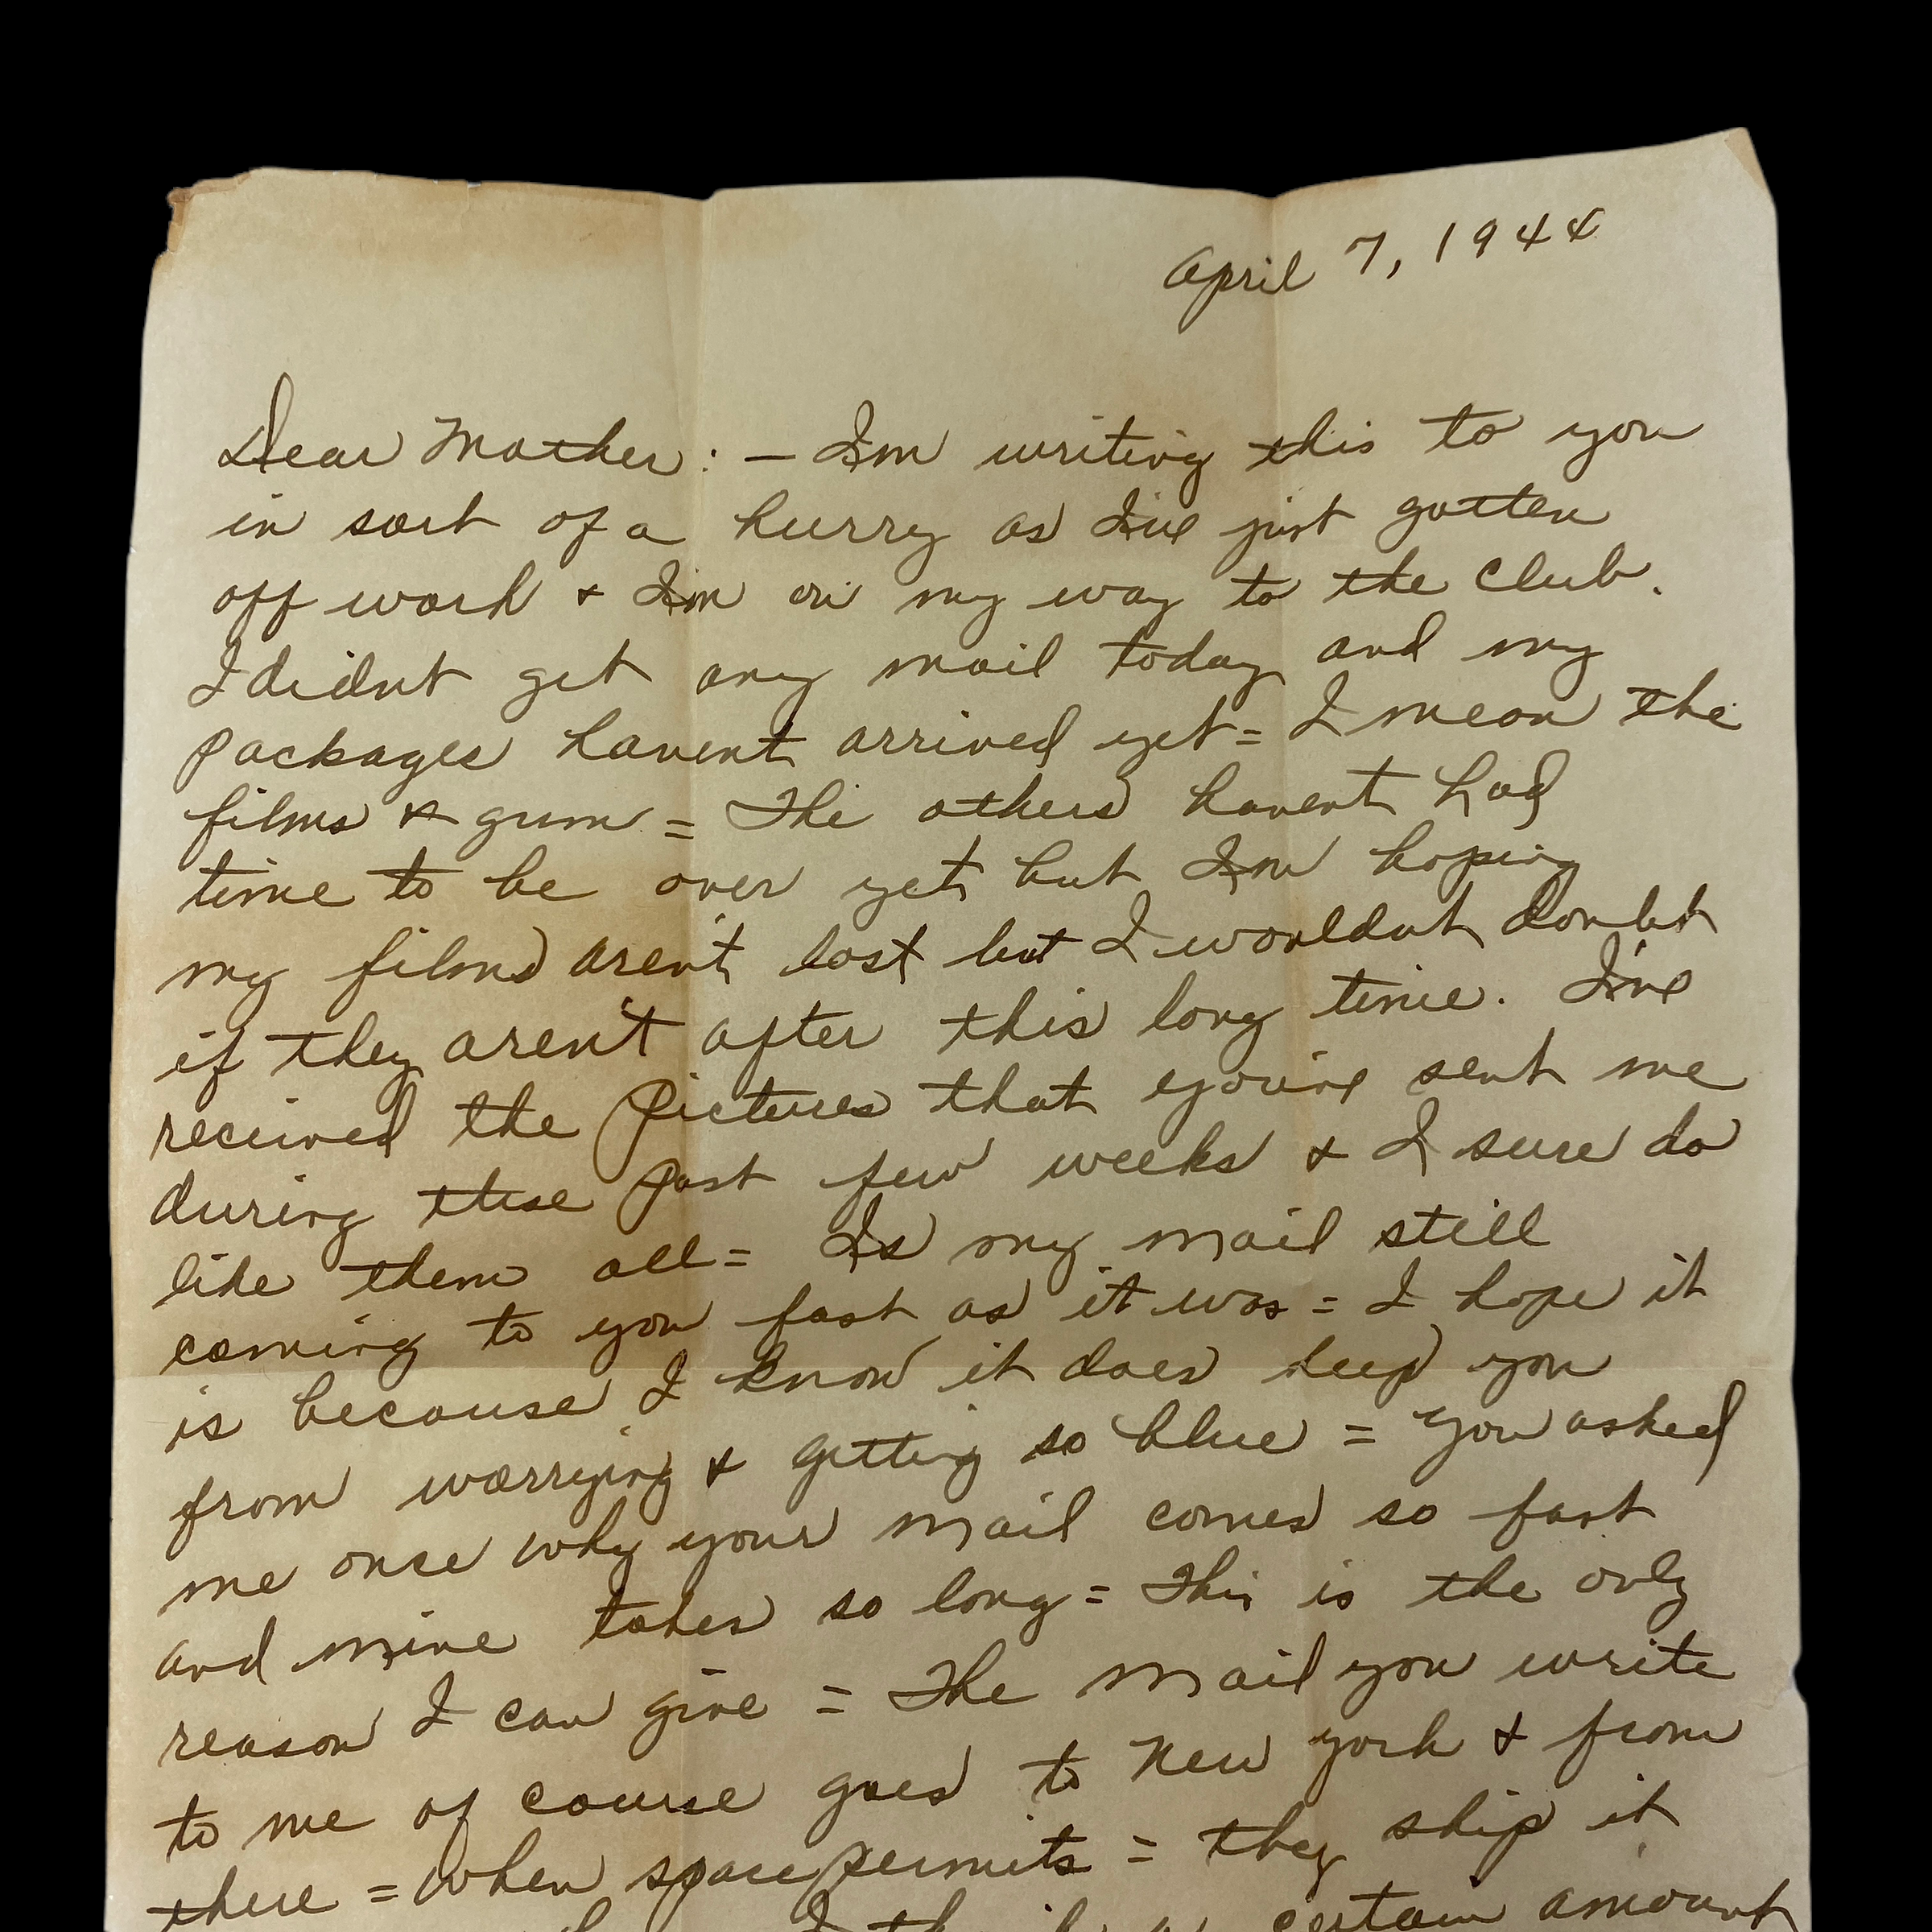 April 7, 1944
Dear Mother: — I'm writing this to you
in sort of a hurry as I've just gotten
off work & I'm on my way to the club.
I didn't get any mail today and my
packages haven't arrived yet = I mean the
films & gum = The others haven't had
time to be over yet but I'm hoping
my films aren't lost but I wouldn't doubt
if they aren't after this long time. I've
received the pictures that you've sent me
during these past few weeks & I sure do
like them all = Is my mail still
coming to you fast as it was = I hope it
is because I know it does keep you
from worrying & getting so blue = you asked
me once why your mail comes so fast
and mine takes so long = This is the only
reason I can give = The mail you write
to me of course goes to New York & from
there = when space permits = they ship it
certain amount